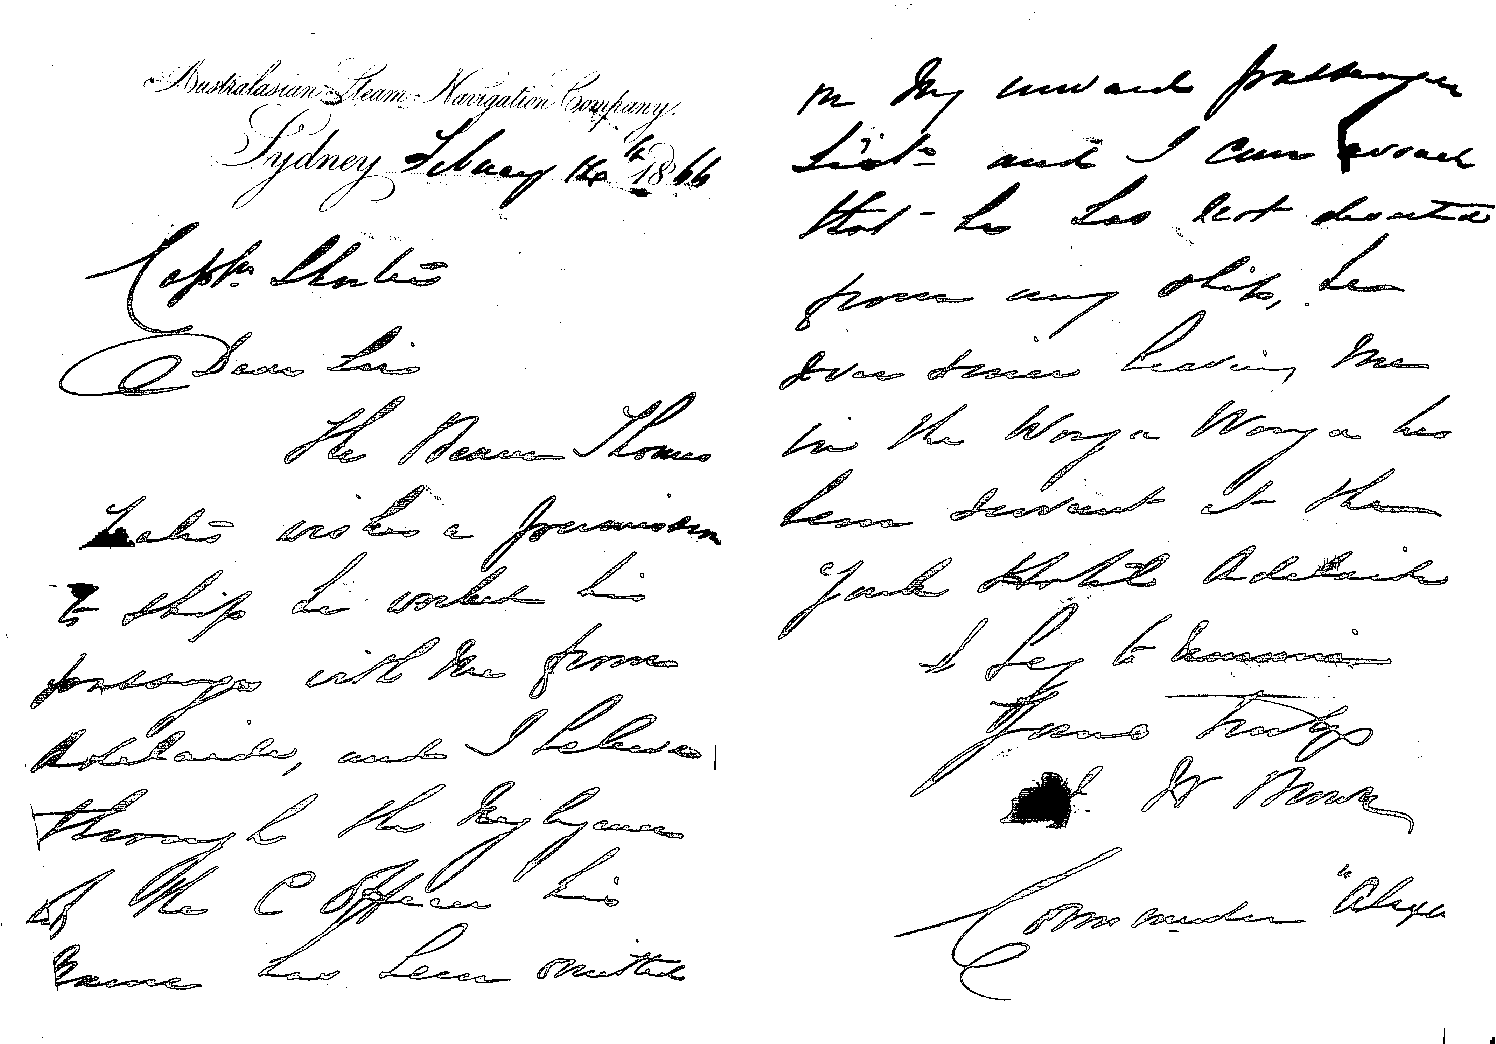 Australasian Steam Navigation Company.
Sydney February 16th 1866
Captn.
Dear Sir
The Bearer Thomas
wishes a permission
to ship he worked his
passage with me from
Adelaide, and I believe
through the Neglegence
of the C Officer his
name has been omitted
in my inward passenger
List and I can
that he has not deserted
from my ship, he
ever since leaving me
in the Wonga Wonga has
been servant at the
York Hotel Adelaide
I beg to remain
Yours Truly
W Brown
Commander "Alexa